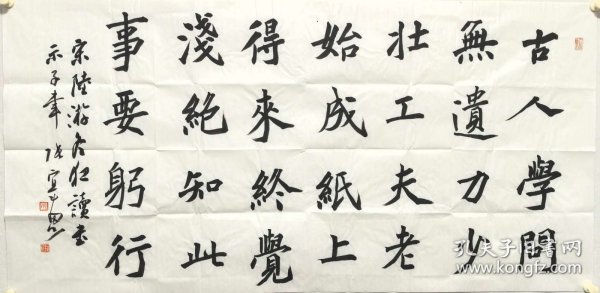 古人學問
無遺力少
壯工夫老
始成紙上
得來終覺
淺絕知此
事要躬行
宋陸游冬夜讀書
示子聿
孔夫子旧书网
www.kongfz.com